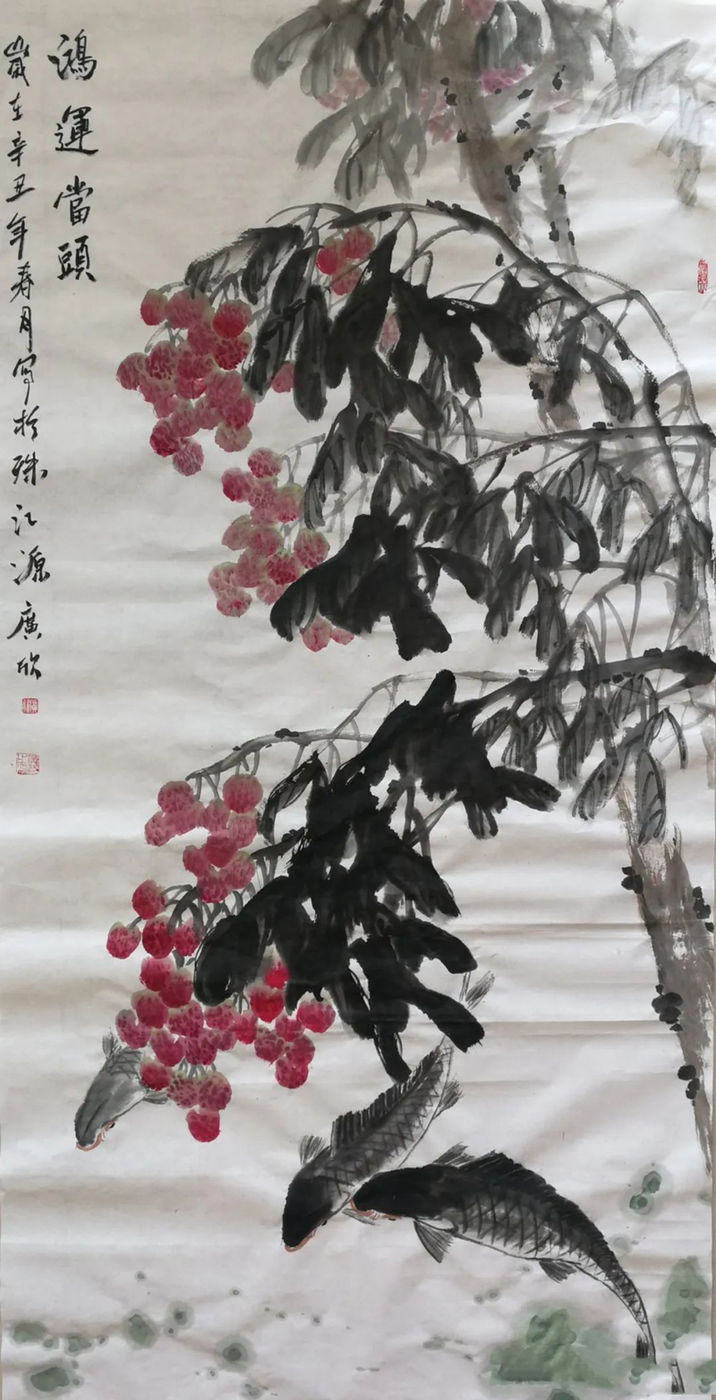 鴻運當頭
歲在辛丑年春月寫於珠江源廣欣